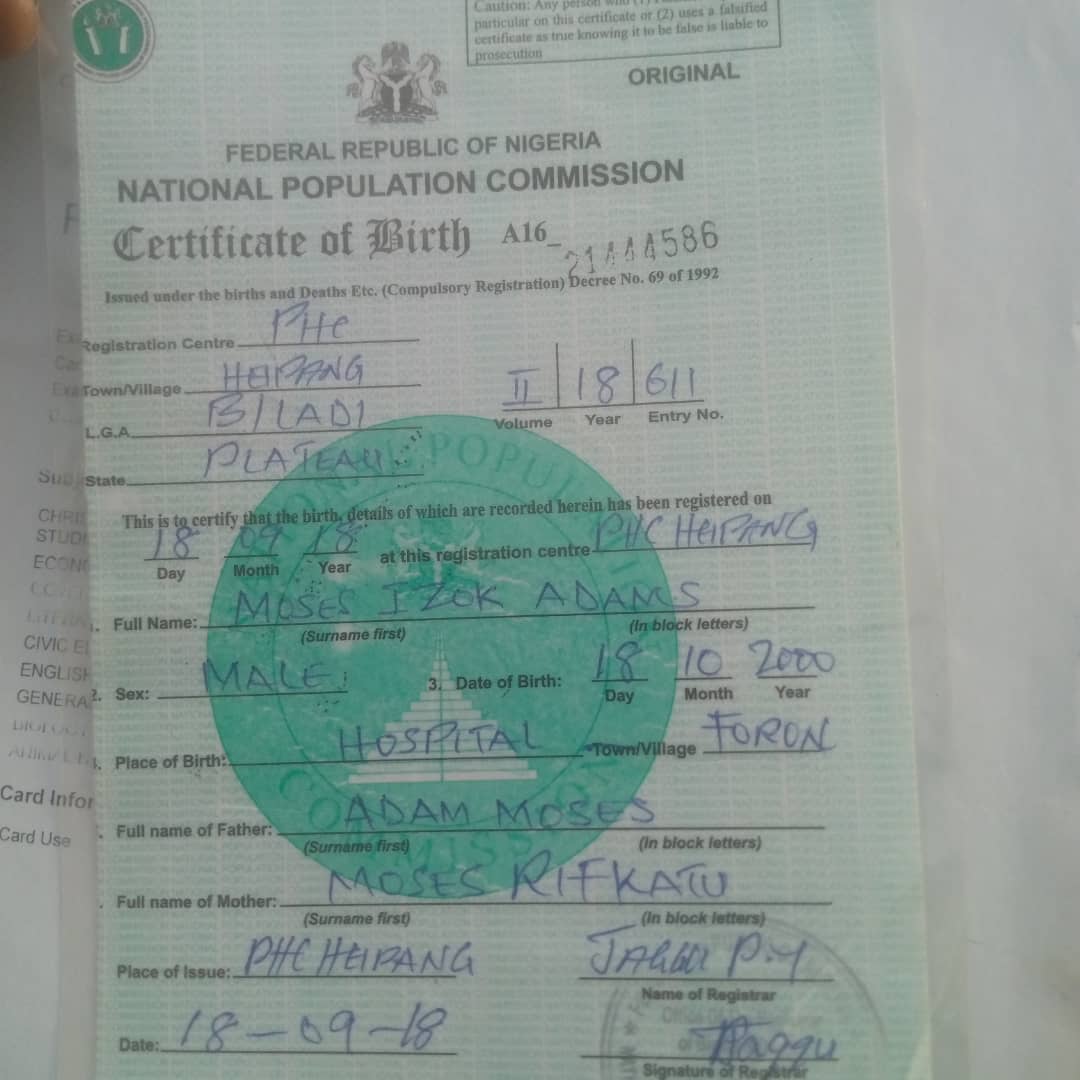 Caution: Any person who (1)
particular on this certificate or (2) uses a falsified
certificate as true knowing it to be false is liable to
prosecution
ORIGINAL
FEDERAL REPUBLIC OF NIGERIA
NATIONAL POPULATION COMMISSION
Certificate of Birth A16_ 21444586
Issued under the births and Deaths Etc. (Compulsory Registration) Decree No. 69 of 1992
Registration Centre PHC
Town/Village HEIPANG
II 18 611
Volume Year Entry No.
L.G.A. B/LADI
State PLATEAU
This is to certify that the birth, details of which are recorded herein has been registered on
18 09 18 at this registration centre PHC HEIPANG
Day Month Year
Full Name: MOSES IZOK ADAMS
(Surname first) (In block letters)
2. Sex: MALE 3. Date of Birth: 18 10 2000
Day Month Year
Place of Birth: HOSPITAL Town/Village FORON
Full name of Father: ADAM MOSES
(Surname first) (In block letters)
Full name of Mother: MOSES RIFKATU
(Surname first) (In block letters)
Place of Issue: PHC HEIPANG
P.Y
Name of Registrar
Date: 18-09-18
Signature of Registrar
CIVIC
ENGLISH
GENERA
Card Infor
Card Use